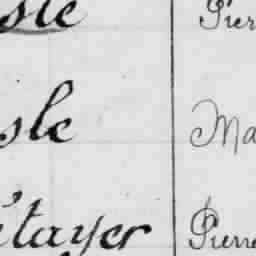 sle Pier
sle Ma
étayer Pierre